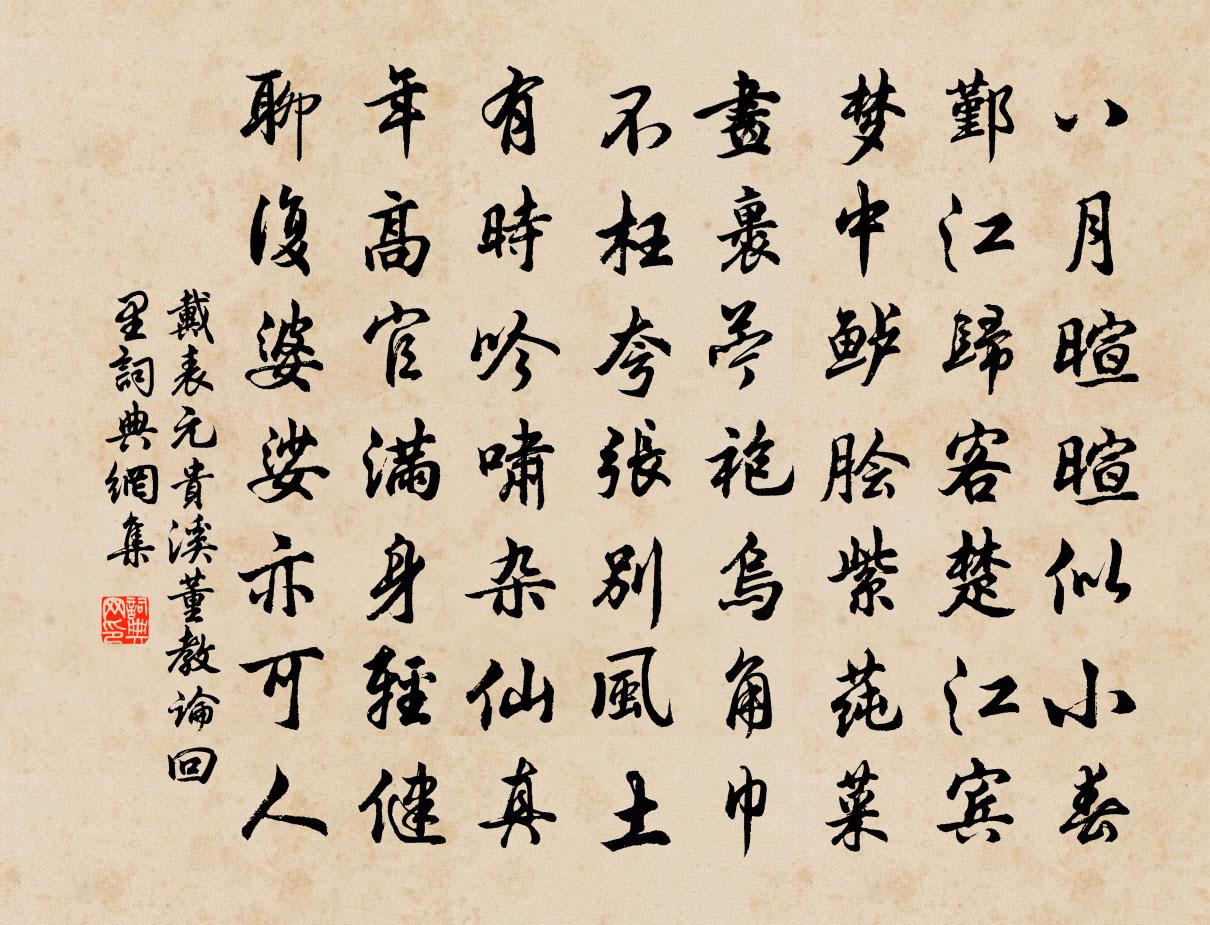 八月暄暄似小春
鄞江歸客楚江賓
梦中鲈脍紫莼菜
畫裏苧袍烏角巾
不枉夸張別風土
有時吟嘯杂仙真
年高官满身輕健
聊復婆娑亦可人
戴表元貴溪董教论回
里詞典網集
詞典网印